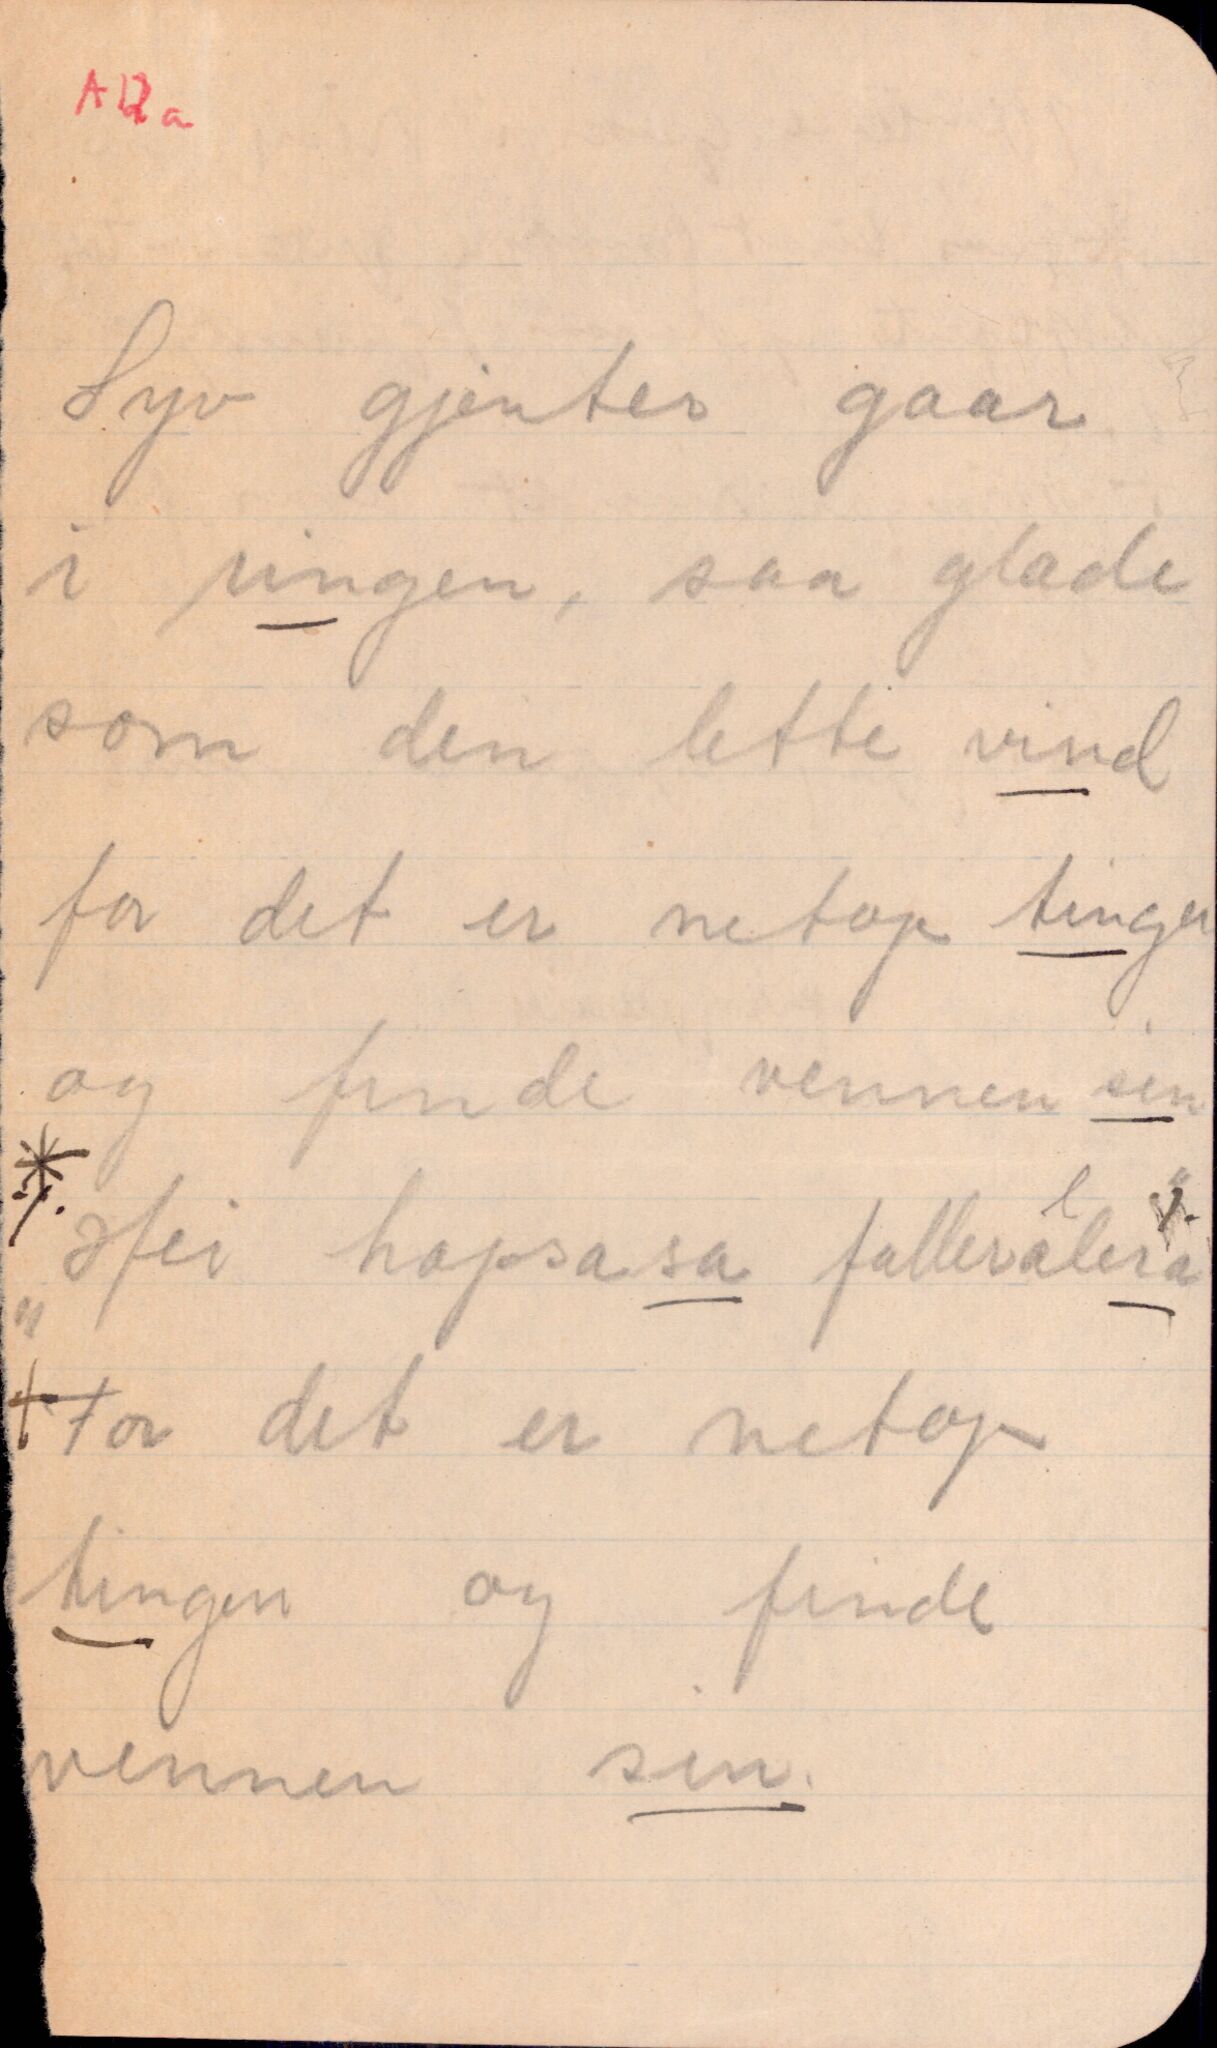 A 12 a
Syv gjenter gaar
i ringen, saa glade
som den lette vind
for det er netop tingen
og finde vennen sin
* ·/. Hei hopsasa falleralera l ·/.
" For det er netop
tingen og finde
vennen sin.